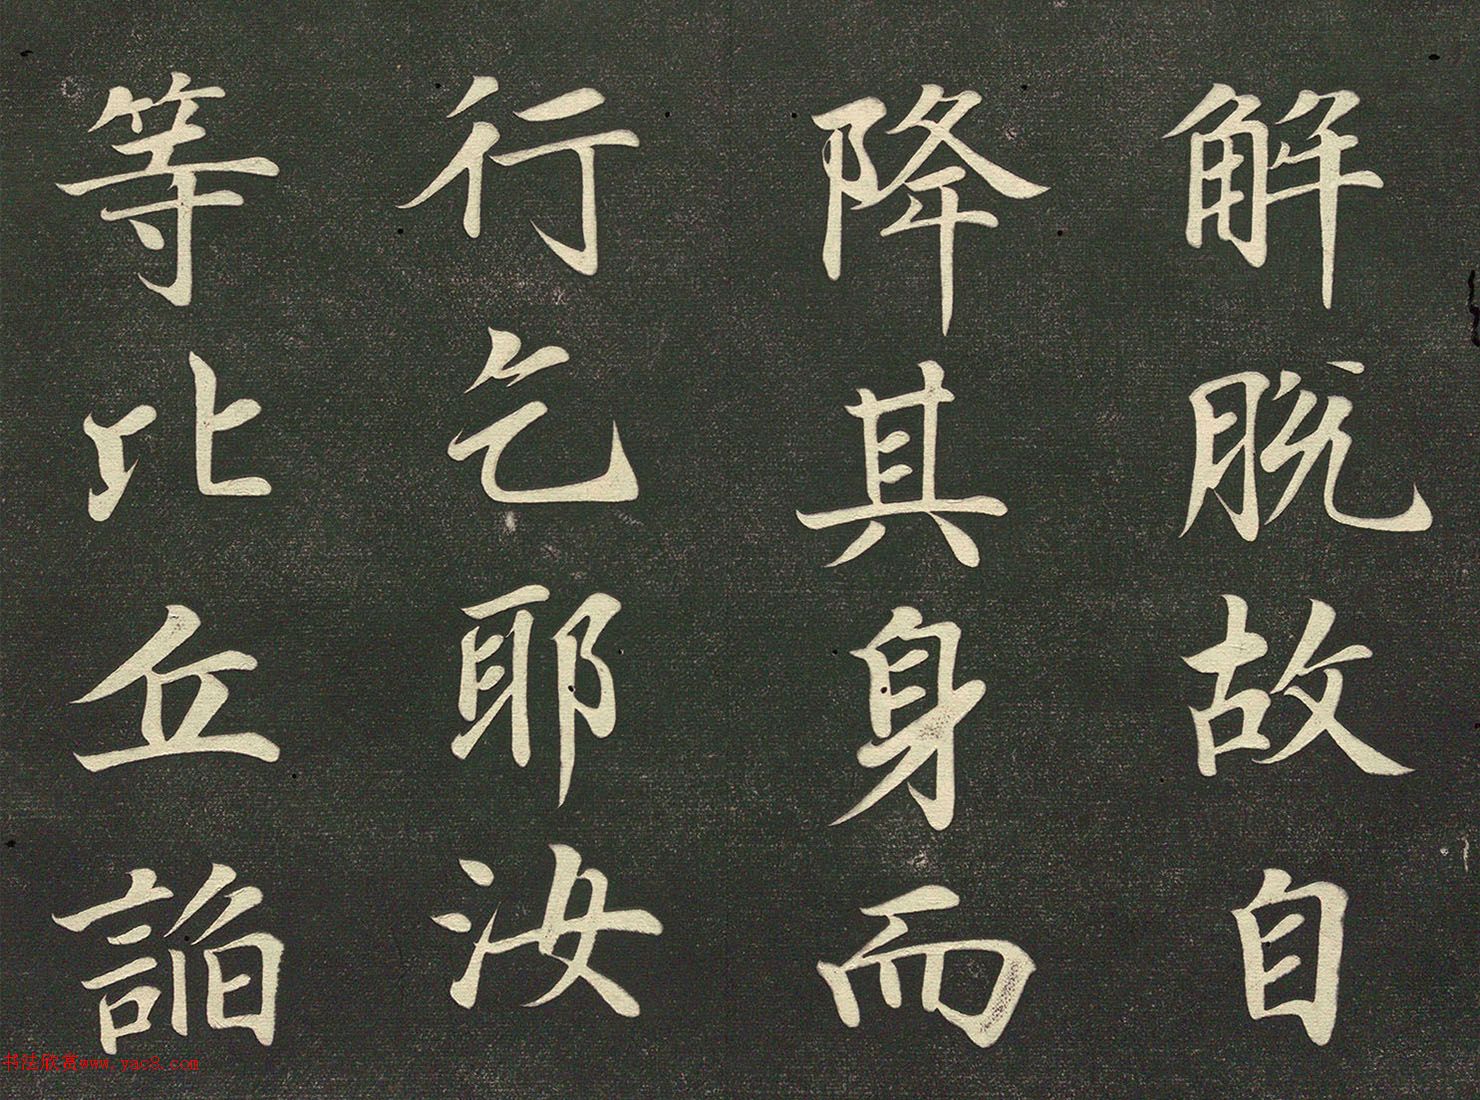 解脫故自
降其身而
行乞耶汝
等比丘諂
书法欣赏www.yac8.com